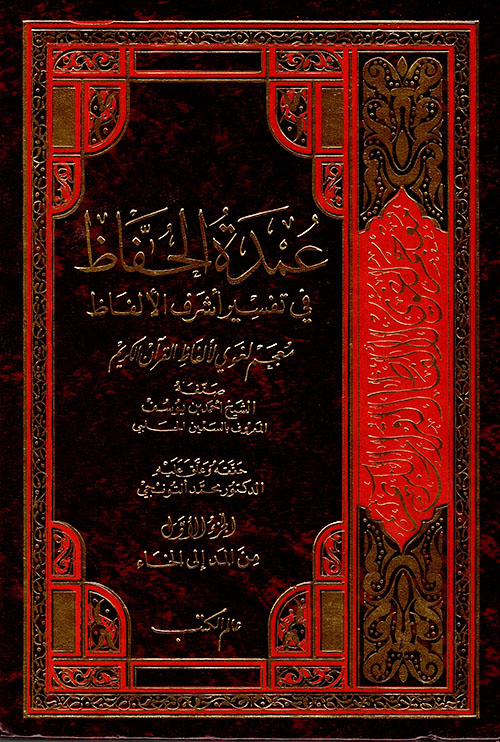 عُمْدَةُ الحُفَّاظ
في تفسير أشرف الألفاظ
معجم لغوي لألفاظ القرآن الكريم
صنّفه
الشيخ أحمد بن يوسف
المعروف بالسمين الحلبي
حققه وعلق عليه
الدكتور محمد ألتونجي
الجزء الأول
من المد إلى الخاء
عالم الكتب
معجم لغوي لألفاظ القرآن الكريم